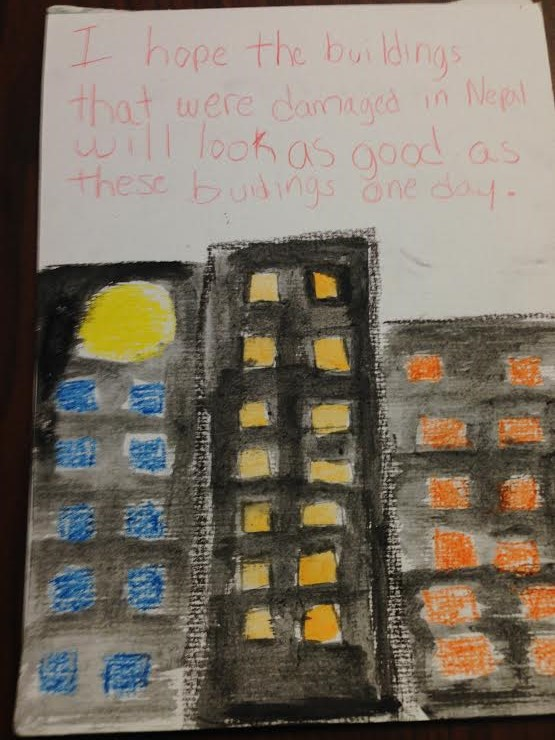 I hope the buildings
that were damaged in Nepal
will look as good as
these buidings one day.